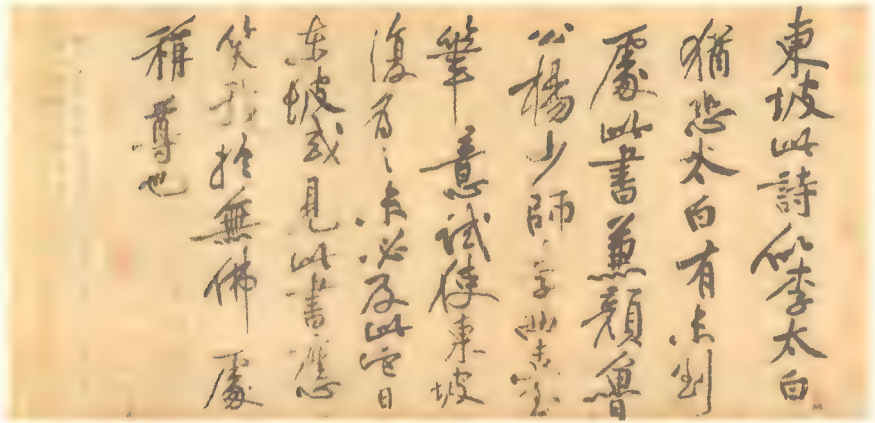 東坡此詩似李太白
猶恐太白有未到
處此書兼顔魯
公楊少師李西臺
筆意試使東坡
復為之未必及此它日
東坡或見此書應
笑我於無佛處
稱尊也